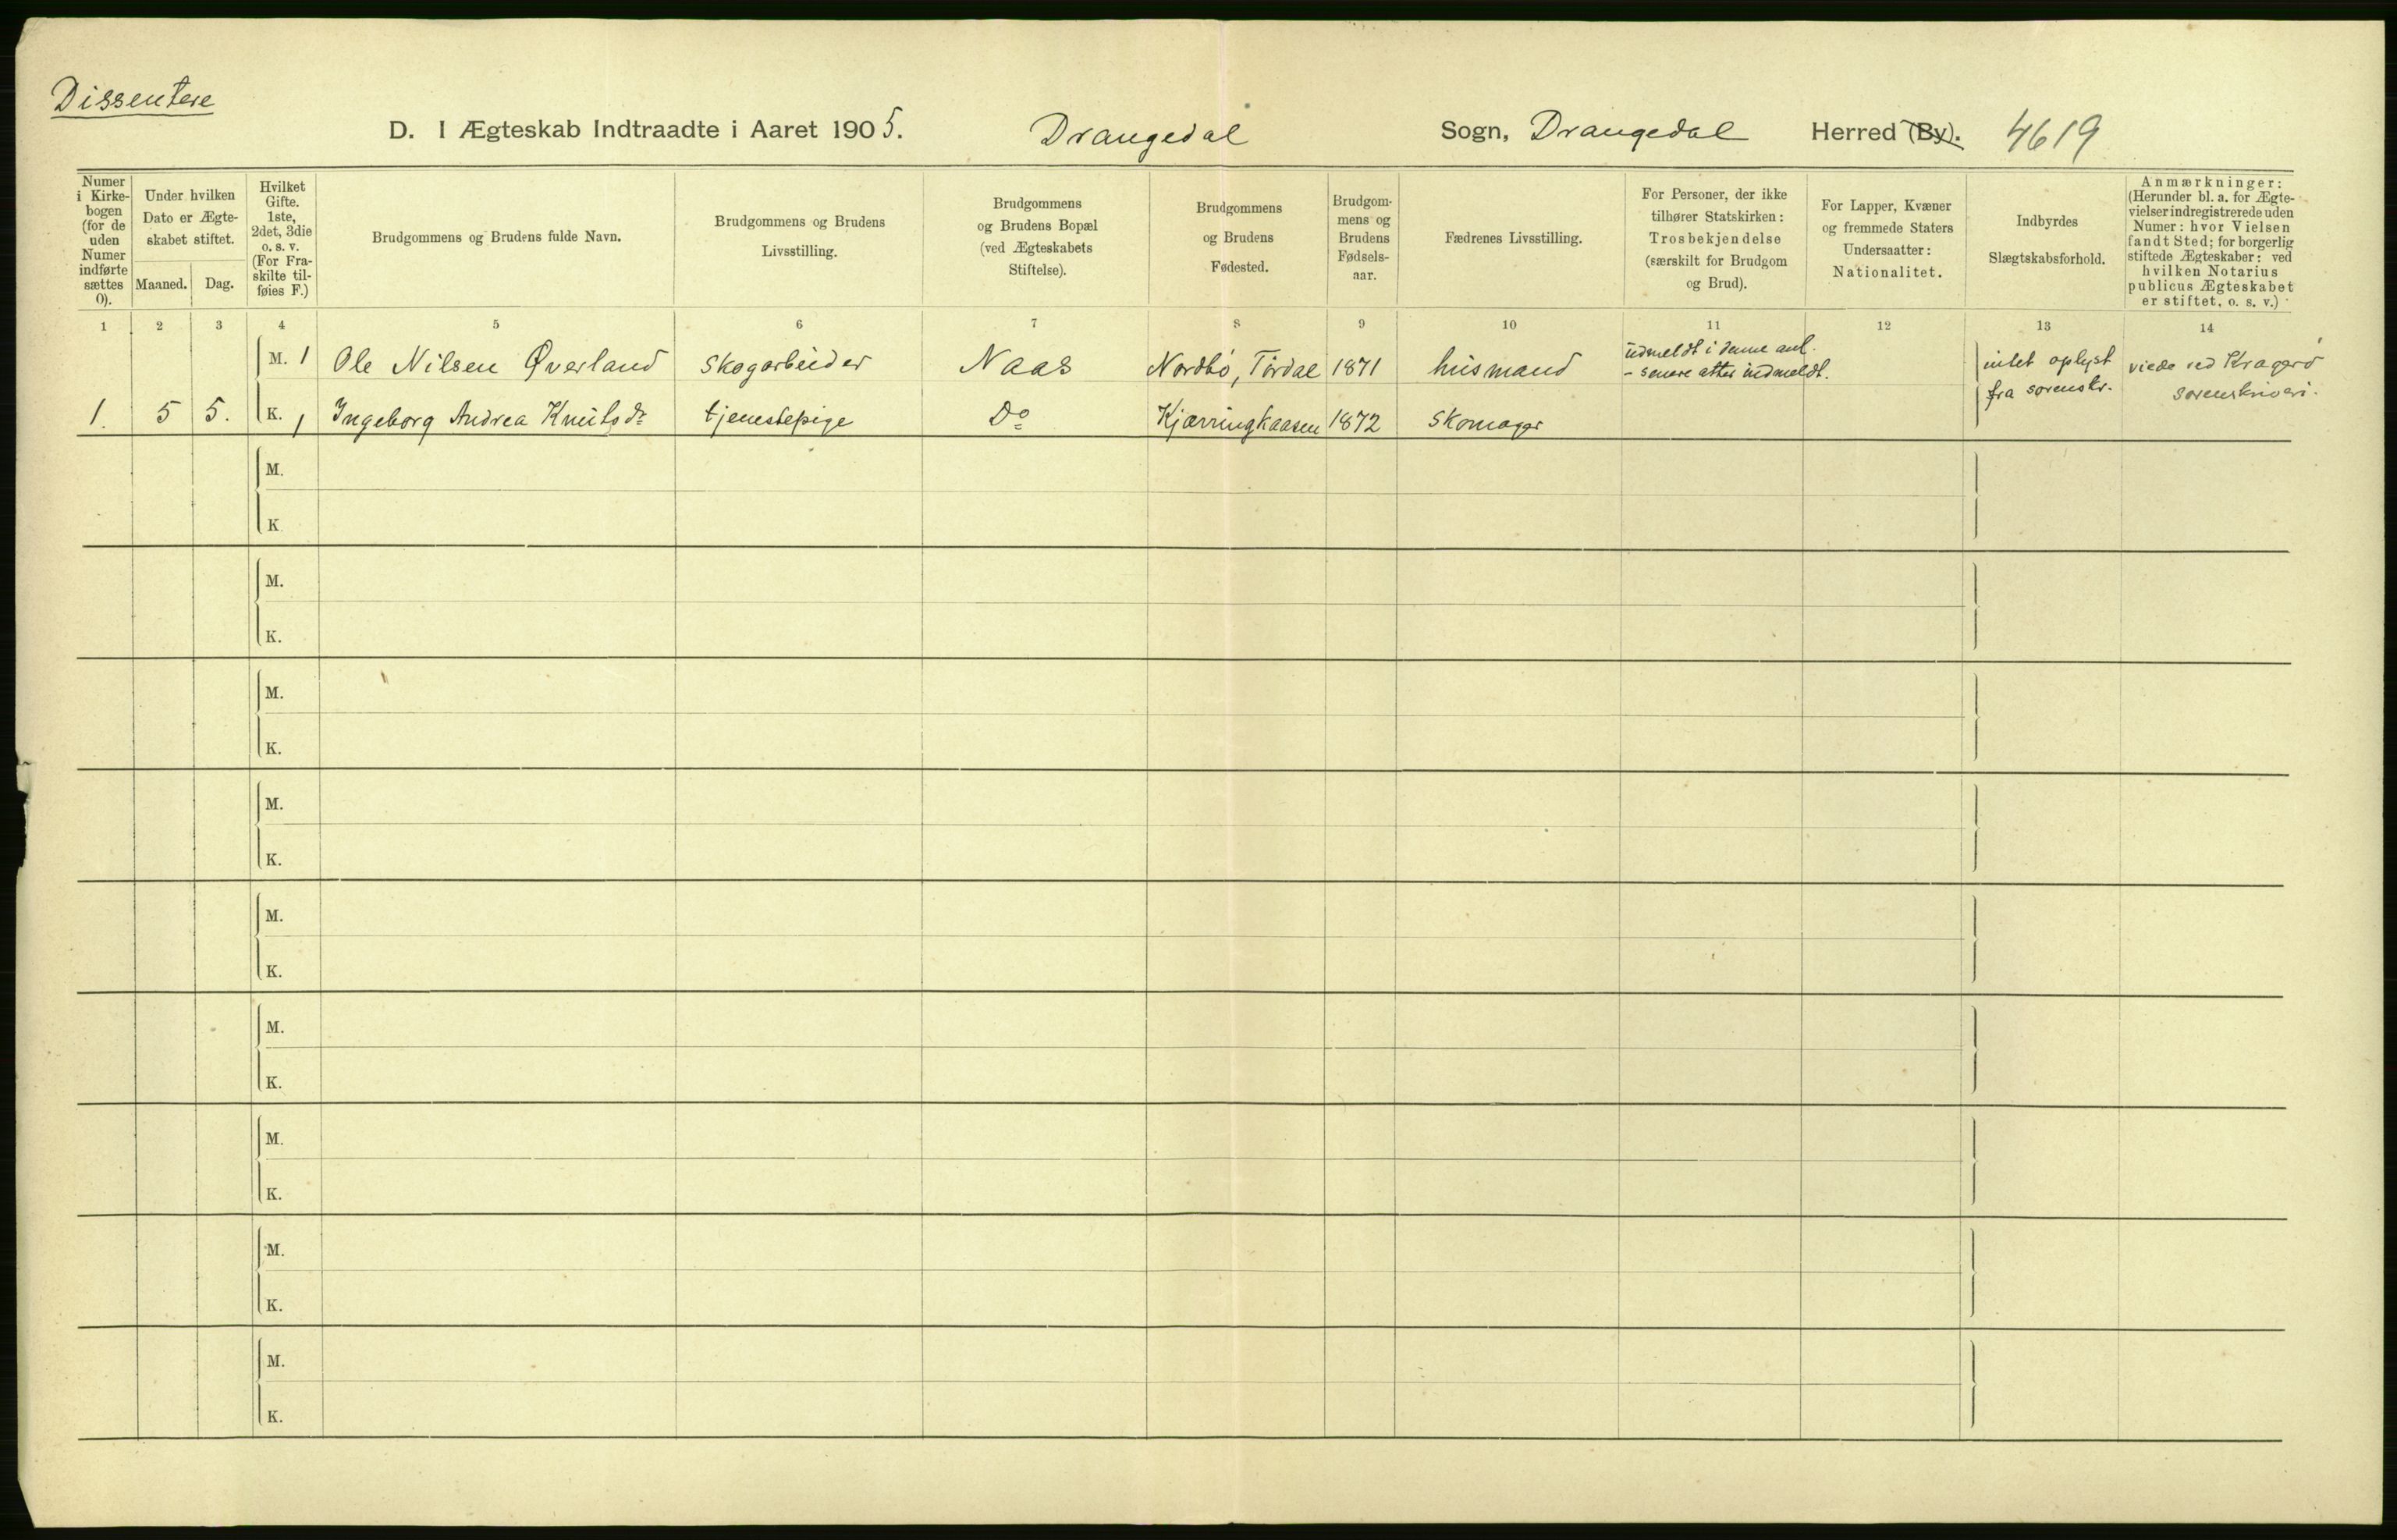 Dissentere
D. I Ægteskab Indtraadte i Aaret 1905. Drangedal Sogn, Drangedal Herred (By). 4619
Numer
i Kirke-
bogen
(for de
uden
Numer
indførte
sættes
0).
Under hvilken
Dato er Ægte-
skabet stiftet.
Maaned. Dag.
Hvilket
Gifte.
1ste,
2det, 3die
o. s. v.
(For Fra-
skilte til-
føies F.)
Brudgommens og Brudens fulde Navn.
Brudgommens og Brudens
Livsstilling.
Brudgommens
og Brudens Bopæl
(ved Ægteskabets
Stiftelse).
Brudgommens
og Brudens
Fødested.
Brudgom-
mens og
Brudens
Fødsels-
aar.
Fædrenes Livsstilling.
For Personer, der ikke
tilhører Statskirken:
Trosbekjendelse
(særskilt for Brudgom
og Brud).
For Lapper, Kvæner
og fremmede Staters
Undersaatter:
Nationalitet.
Indbyrdes
Slægtskabsforhold.
Anmærkninger:
(Herunder bl. a. for Ægte-
vielser indregistrerede uden
Numer: hvor Vielsen
fandt Sted; for borgerlig
stiftede Ægteskaber: ved
hvilken Notarius
publicus Ægteskabet
er stiftet, o. s. v.)
1 2 3 4 5 6 7 8 9 10 11 12 13 14
M. 1 Ole Nilsen Øverland Skogarbeider Naas Nordbø, Tørdal 1871 husmand
udmeldt i denne anl.
- senere atter indmeldt.
intet oplyst
fra sorenskr.
viede ved Kragerø
sorenskriveri.
1. 5 5. K. 1 Ingeborg Andrea Knutsdr tjenestepige Do Kjærringkaasen 1872 Skomager
M.
K
M.
K.
M.
K.
M.
K.
M.
K.
M.
K.
M.
K.
M.
K.
M.
K.